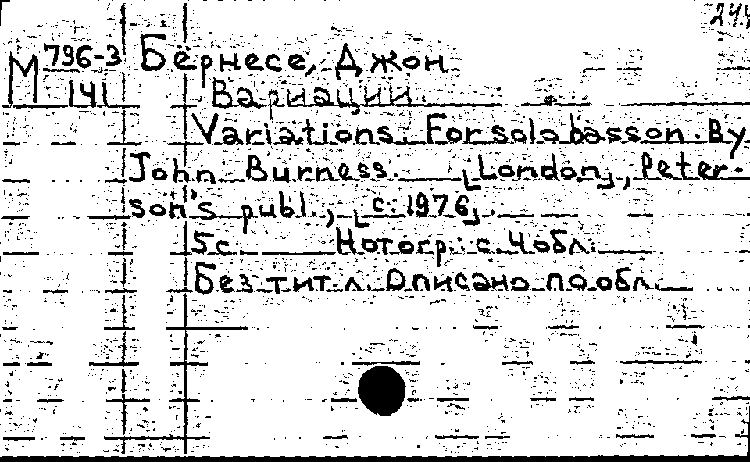 М 796-3 Бернесе, Джон
141 Вариации.
Variations. For solo basson. By
John Burness. [London], Peter-
son's publ., [c. 1976].
5с. Нотогр.: с. 4 обл.
Без тит л. Описано по обл.